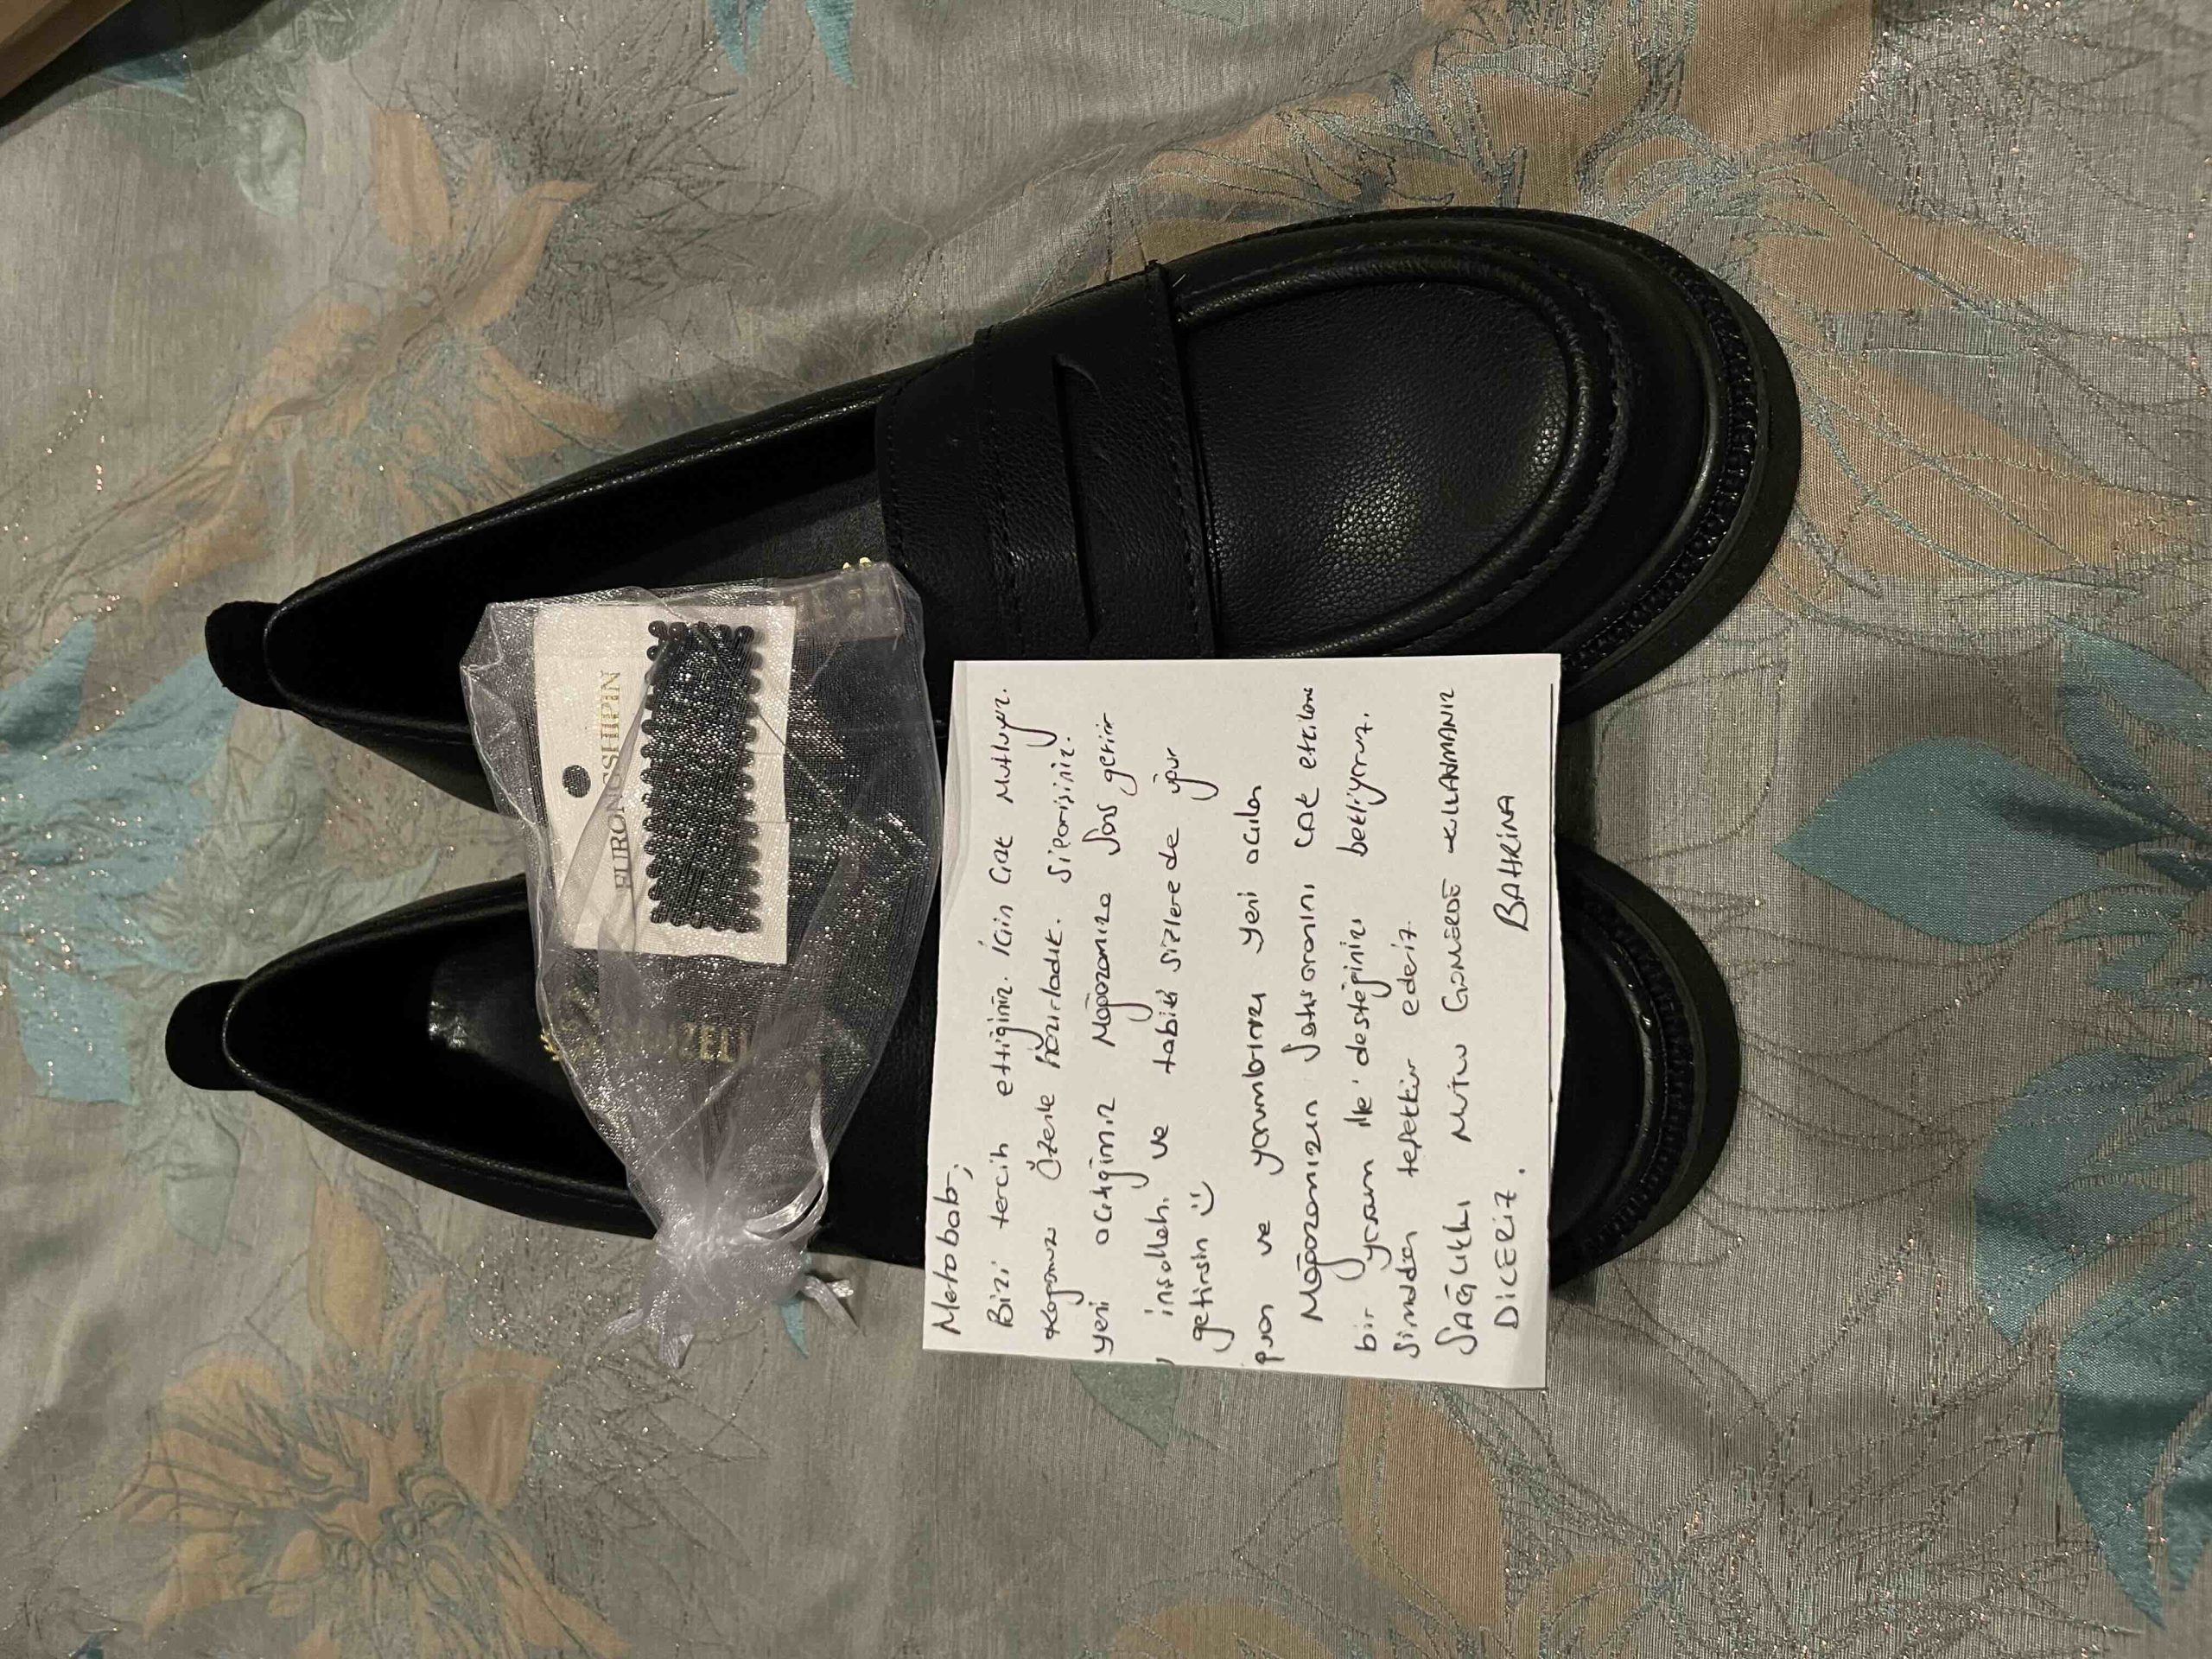 FURONGSHIPIN
GÜZELL
Merabab;
Bizi tercih ettiğiniz. İçin Çok Mutluyuz.
Kargonuzu Özenle hazırladık. Siparişiniz.
yeni açtığımız Mağazamıza Şans getirir
inşallah. ve tabiki sizlere de uğur
getirsin
puan ve yorumlarınız yeni açılan
Mağazamızın Satış oranını çok etkilemekte
bir yorum ile desteğinizi bekliyoruz.
Şimdiden teşekkür ederiz.
SAĞLIKLI MUTLU GÜNLERDE KULLANMANIZ
DİLERİZ.
BAHRİNA